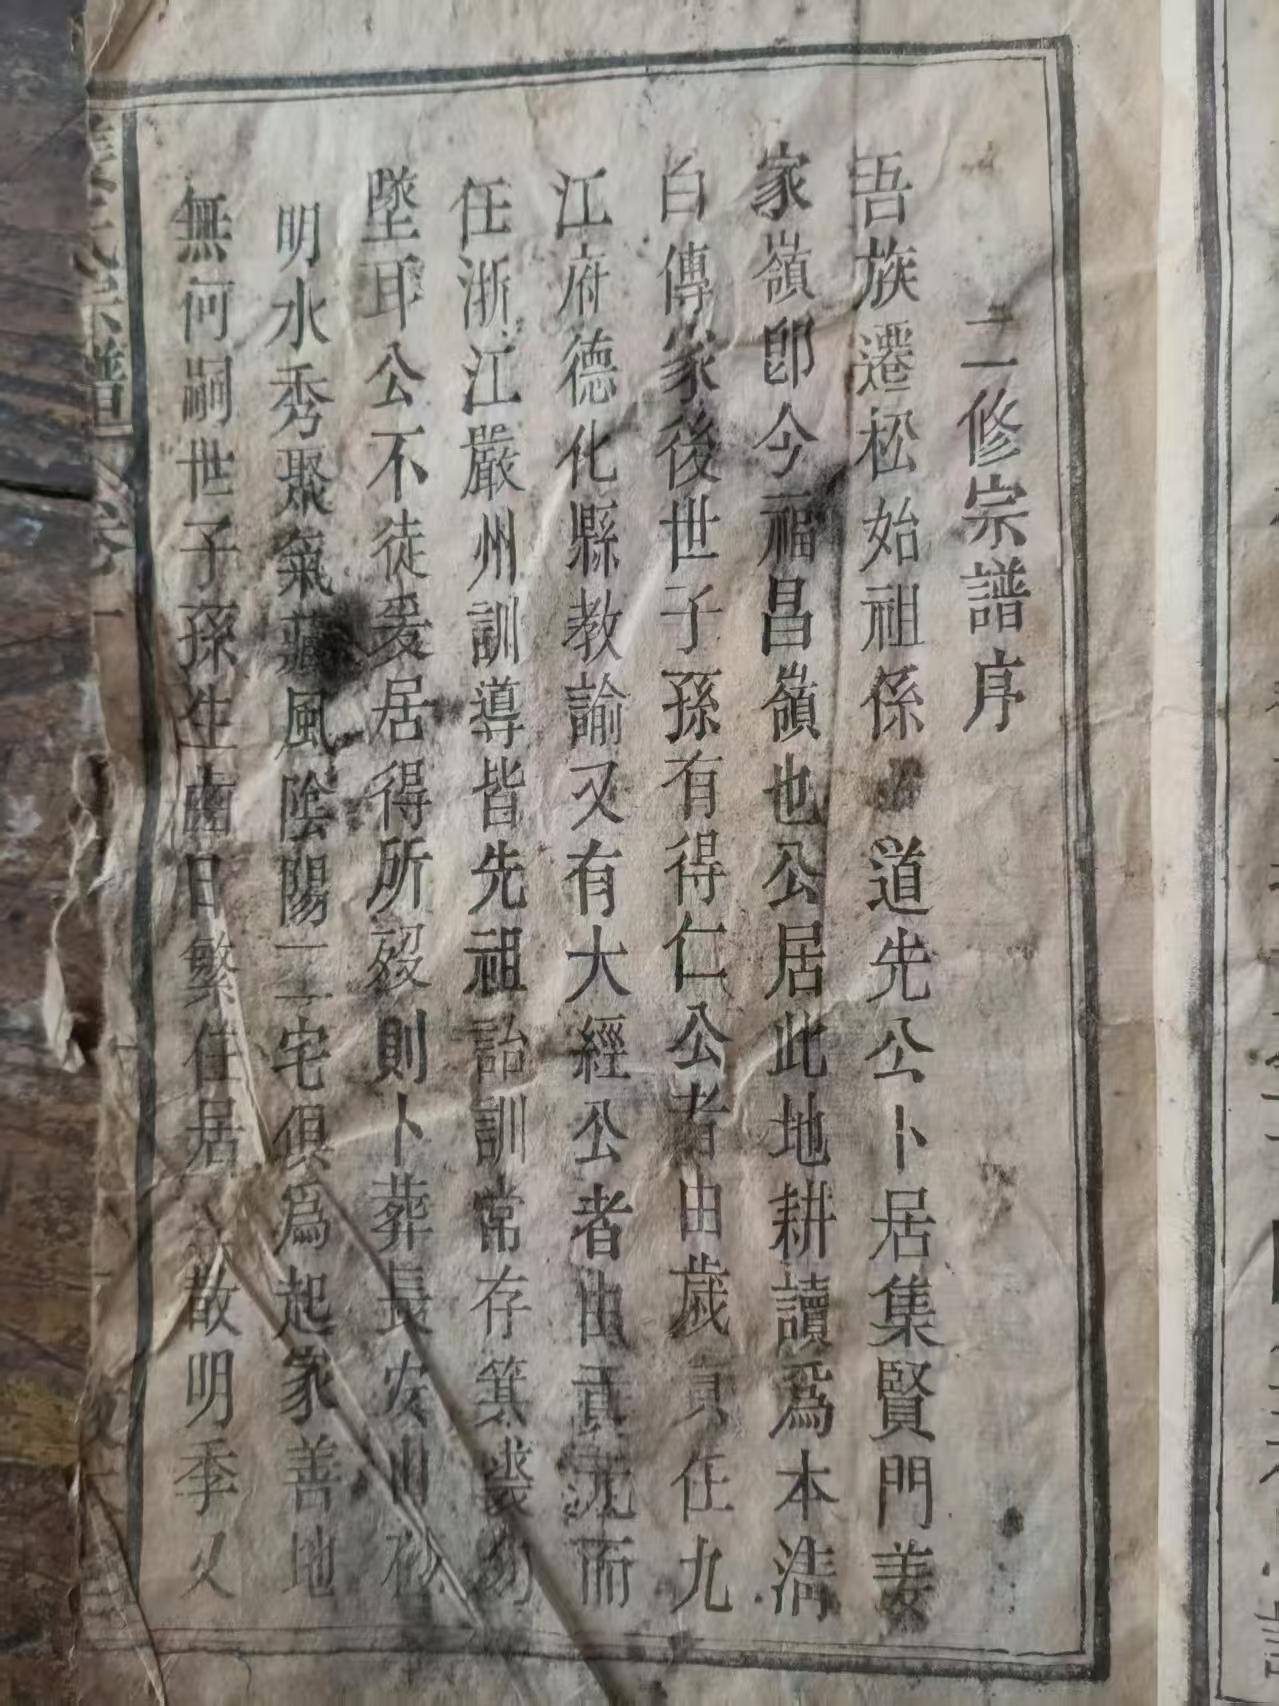 二修宗譜序
吾族遷松始祖係道先公卜居集賢門姜
家嶺卽今福昌嶺也公居此地耕讀爲本淸
白傳家後世子孫有得仁公者由歲貢任九
江府德化縣教諭又有大經公者由貢元而
任浙江嚴州訓導皆先祖詒訓常存箕裘勿
墜耳公不徒爰居得所歿則卜葬長安山砂
明水秀聚氣藏風陰陽二宅俱爲起家善地
無何嗣世子孫生齒日繁住居散明季又
氏宗譜 卷一